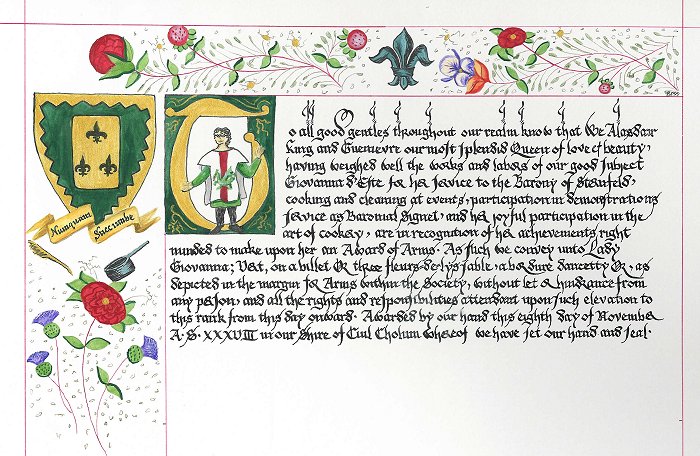 Ross
To all good gentles throughout our realm know that We Alasdair
King and Guenievre our most splendid Queen of love & beauty,
having weighed well the works and labors of our good subject
Giovanna d'Este for her service to the Barony of Steinfeld,
cooking and cleaning at events, participation in demonstrations
service as Baronial Signet, and her joyful participation in the
art of cookery, are in recognition of her achievements right
minded to make upon her an Award of Arms. As such we convey unto Lady
Giovanna; Vert, on a billet Or three fleurs-de-lys sable, a bordure dancetty Or, as
depicted in the margin for Arms within the Society, without let or hindrance from
any person, and all the rights and responsibilities attendant upon such elevation to
this rank from this day onward. Awarded by our hand this eighth day of November
A.S. XXXVIII in our Shire of Ciul Cholum whereof we have set our hand and seal.
Nunquam
Succumbe